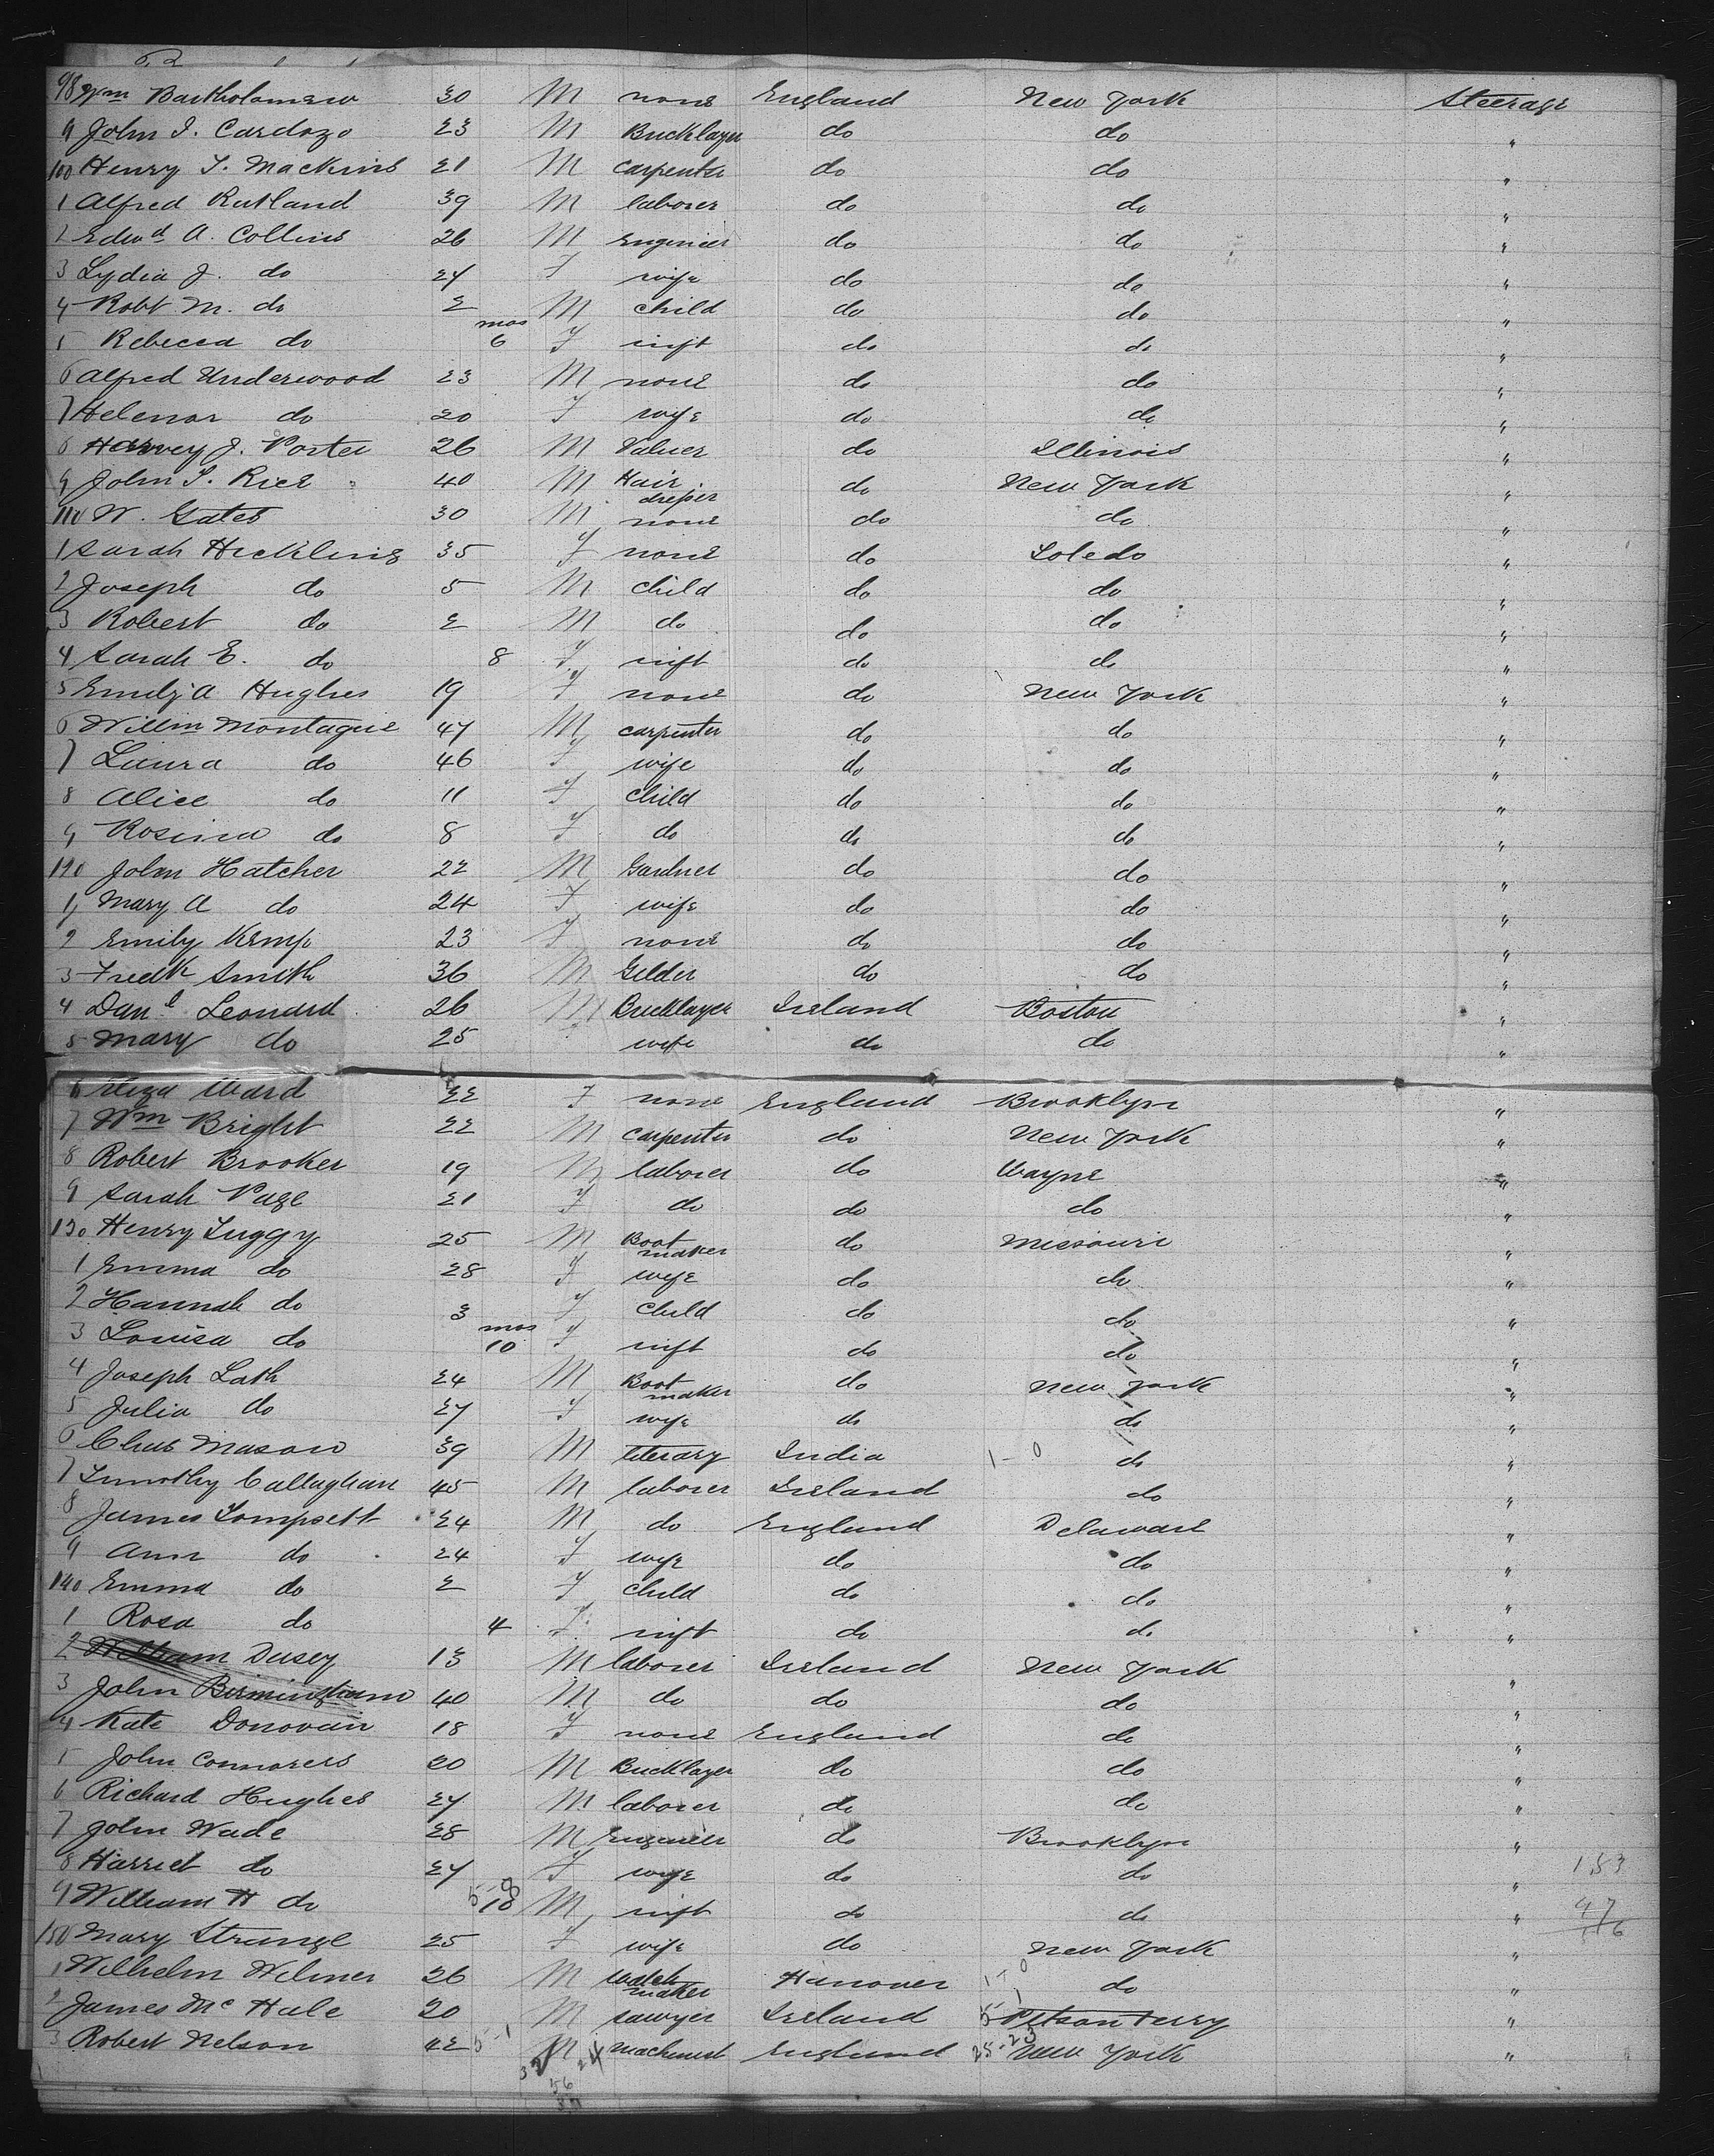 98 Wm Bartholomew 30 M none England New York Steerage
9 John I. Cardozo 23 M Bricklayer do do "
100 Henry T. Mackins 21 M Carpenter do do "
1 Alfred Rutland 39 M laborer do do "
2 Edwd A. Collins 26 M Engineer do do "
3 Lydia J. do 24 F wife do do "
4 Robt M. do 2 M child do do "
5 Rebecca do mos 6 F inft do do "
6 Alfred Underwood 23 M none do do "
7 Helenor do 20 F wife do do "
8 Harvey J. Porter 26 M Valuer do Illinois "
9 John S. Rice 40 M Hair dresser do New York "
110 W. Gates 30 M none do do "
1 Sarah Hickling 35 F none do Toledo "
2 Joseph do 5 M child do do "
3 Robert do 2 M do do do "
4 Sarah E. do 8 F inft do do "
5 Emily A Hughes 19 F none do New York "
6 Willm Montague 47 M carpenter do do "
7 Laura do 46 F wife do do "
8 Alice do 11 F child do do "
9 Rosina do 8 F do do do "
120 John Hatcher 22 M Gardner do do "
1 Mary A do 24 F wife do do "
2 Emily Kemp 23 F none do do "
3 Fredk Smith 36 M Gilder do do "
4 Danl Leonard 26 M Bricklayer Ireland Boston "
5 Mary do 25 wife do do "
6 Eliza Ward 22 F none England Brooklyn "
7 Wm Bright 22 M carpenter do New York "
8 Robert Brooker 19 M laborer do Wayne "
9 Sarah Page 21 F do do do "
130 Henry Tuggy 25 M Boot maker do Missouri "
1 Emma do 28 F wife do do "
2 Hannah do 3 F child do do "
3 Louisa do mos 10 F inft do do "
4 Joseph Lath 24 M Boot maker do New York "
5 Julia do 27 F wife do do "
6 Chas Mason 39 M literary India 1-0 do "
7 Timothy Callaghan 45 M laborer Ireland do "
8 James Tompsett 24 M do England Delaware "
9 Ann do 24 F wife do do "
140 Emma do 2 F child do do "
1 Rosa do 4 F inft do do "
2 William Dusey 13 M laborer Ireland New York "
3 John Birmingham 40 M do do do "
4 Kate Donovan 18 F none England do "
5 John Connorers 20 M Bricklayer do do "
6 Richard Hughes 27 M laborer do do "
7 John Wade 28 M Engineer do Brooklyn "
8 Harriet do 27 F wife do do " 153
9 William H do 10 M inft do do " 47
150 Mary Strange 25 F wife do New York "
1 Wilhelm Wilmer 26 M watch maker Hanover 1-0 do "
2 James McHale 20 M sawyer Ireland "
3 Robert Nelson 42 5-1 M machinist England New York "